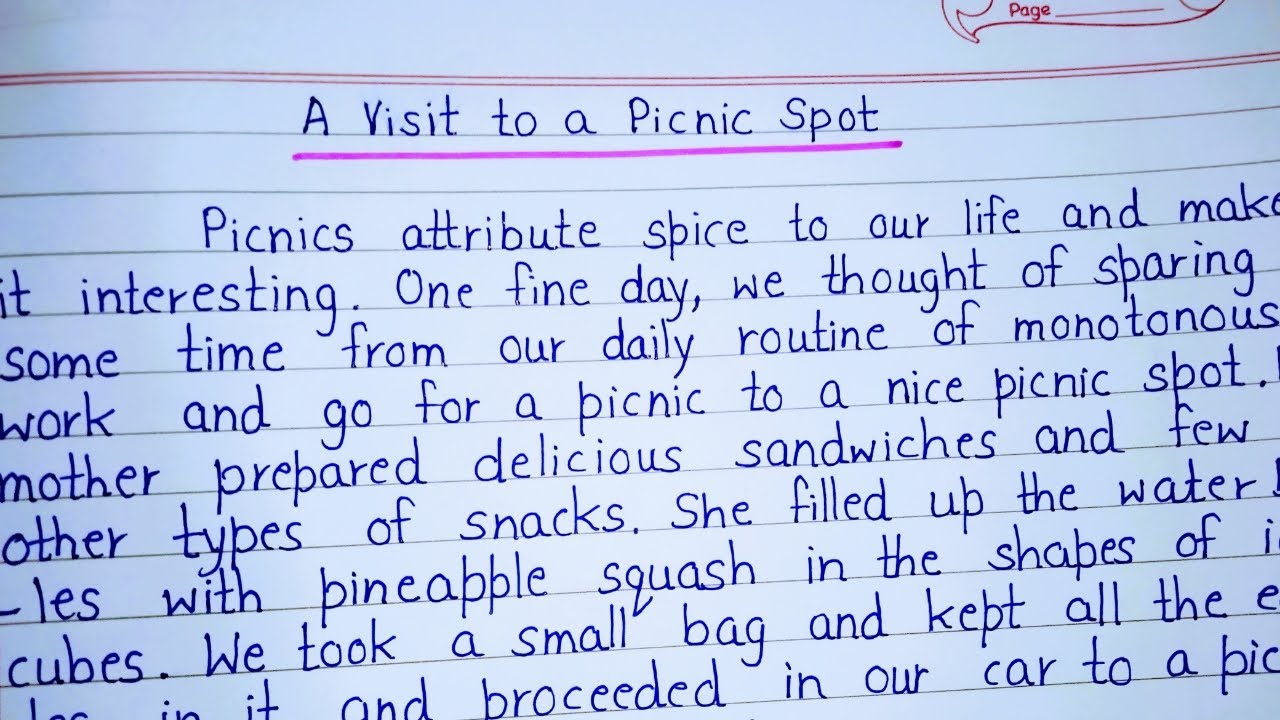 Page
A Visit to a Picnic Spot
Picnics attribute spice to our life and make
it interesting. One fine day, we thought of sparing
some time from our daily routine of monotonous
work and go for a picnic to a nice picnic spot.
mother prepared delicious sandwiches and few
other types of snacks. She filled up the water
-les with pineapple squash in the shapes of
cubes. We took a small bag and kept all the
in it and proceeded in our car to a